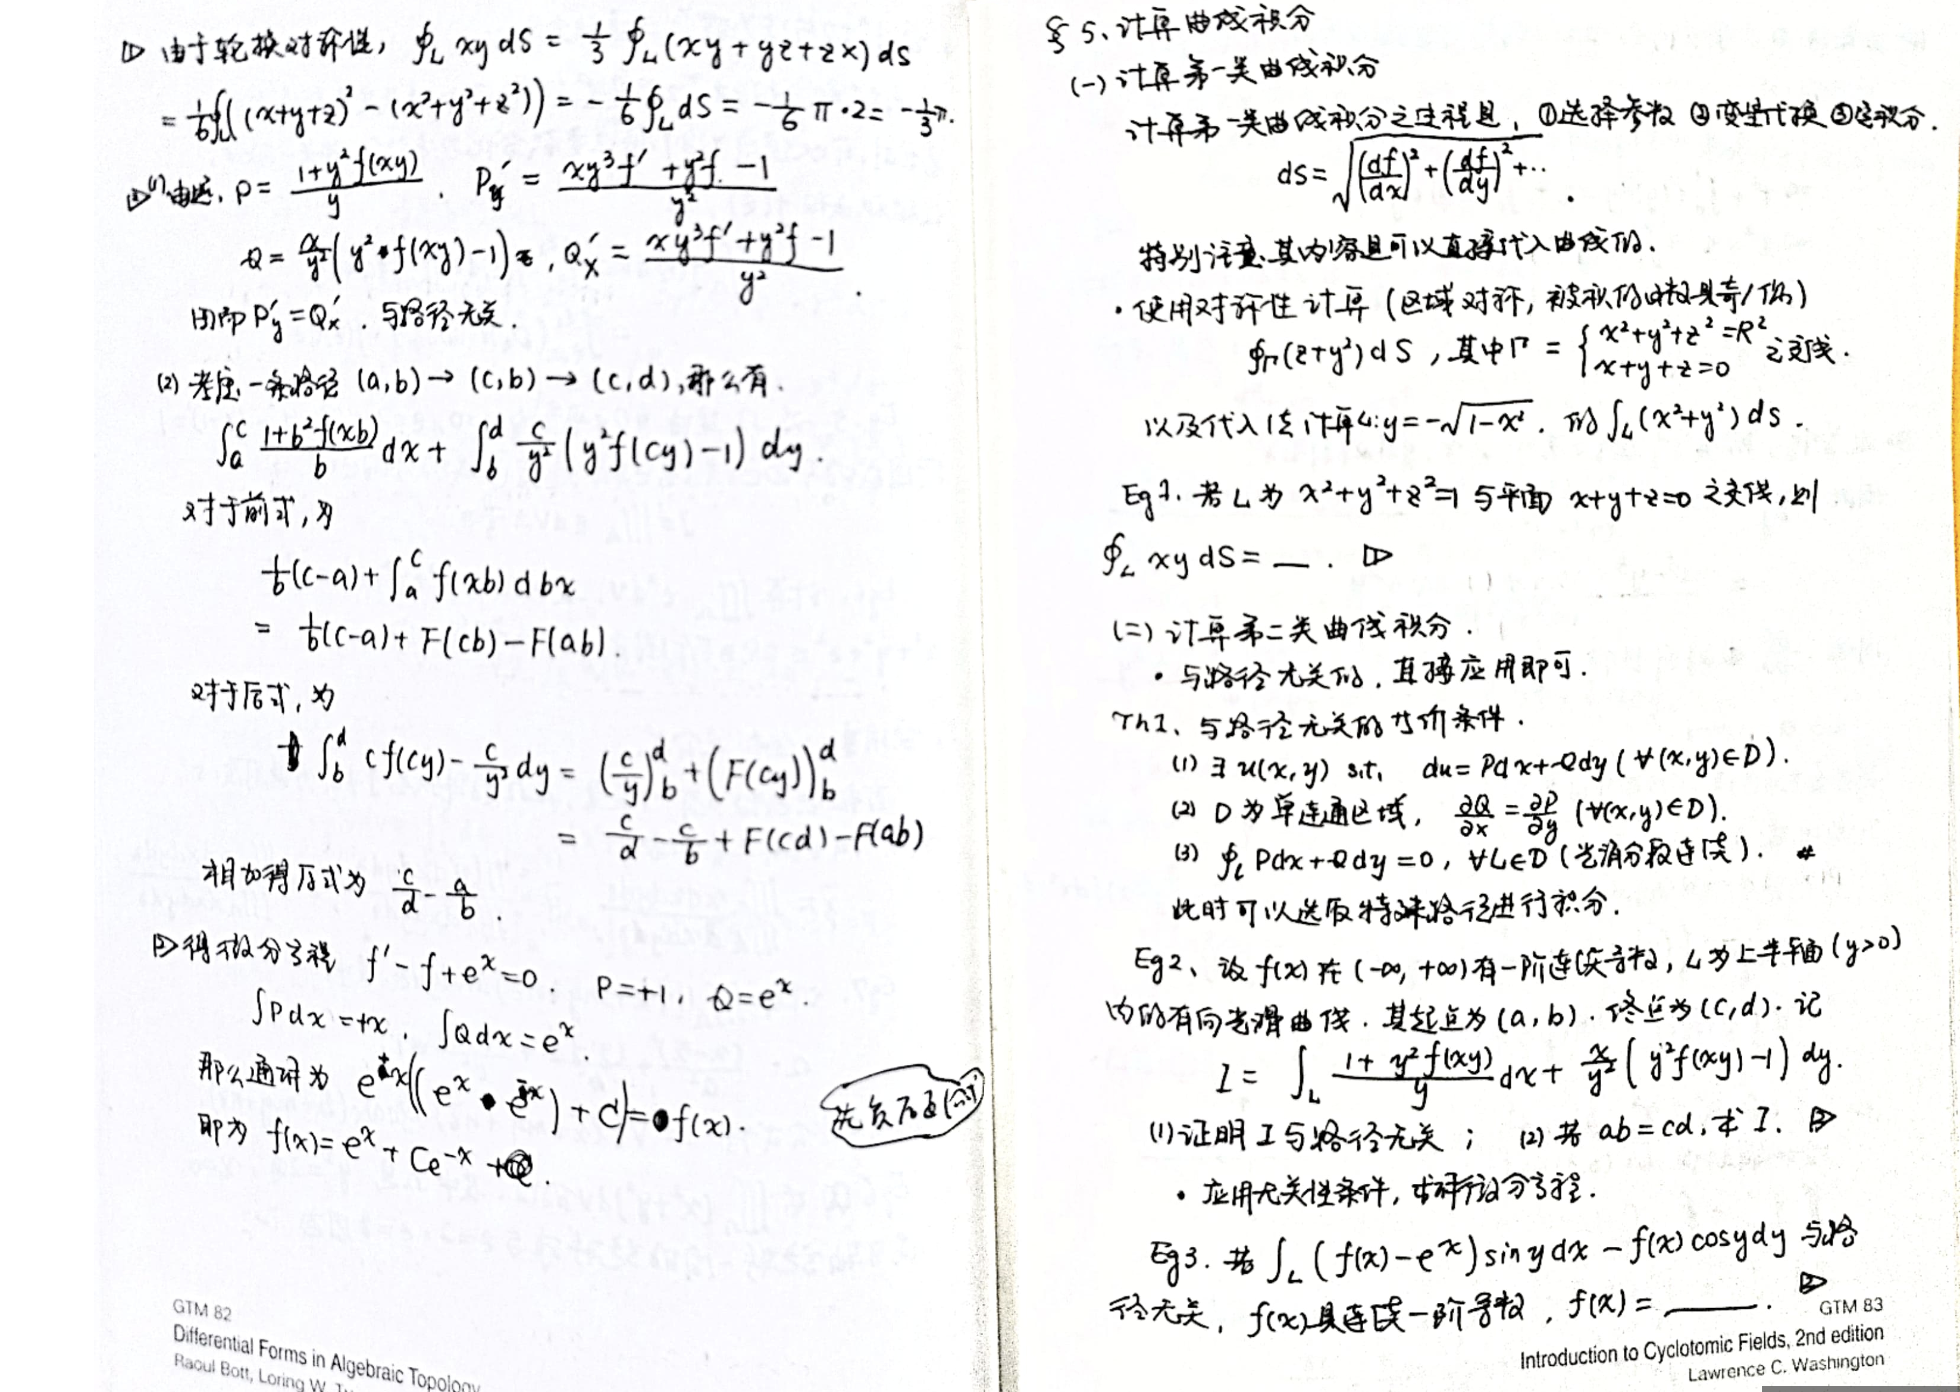 ▷ 由于轮换对称性, ∮_L xy dS = 1/3 ∮_L (xy + yz + zx) ds
= 1/6 ∮_L ((x+y+z)² - (x²+y²+z²)) = - 1/6 ∮_L dS = - 1/6 π·2 = - 1/3 π.
▷ (1) 由题, P = (1+y²f(xy))/y . P'y = (xy³f' + y²f - 1)/y²
Q = x/y² (y²·f(xy)-1), Q'x = (xy³f' + y²f - 1)/y² .
因而 P'y = Q'x . 与路径无关.
(2) 考虑一条路径 (a,b) → (c,b) → (c,d), 那么有.
∫_a^c (1+b²f(xb))/b dx + ∫_b^d c/y² (y²f(cy)-1) dy .
对于前式, 为
1/b (c-a) + ∫_a^c f(xb) d bx
= 1/b (c-a) + F(cb) - F(ab).
对于后式, 为
∫_b^d cf(cy) - c/y² dy = (c/y)_b^d + (F(cy))_b^d
= c/d - c/b + F(cd) - F(ab)
相加得原式为 c/d - a/b .
▷ 得微分方程 f' - f + e^x = 0. P = +1, Q = e^x .
∫Pdx = +x, ∫Qdx = e^x.
那么通解为 e^{±x}((e^x · e^x) + C) = f(x).
即为 f(x) = e^x + Ce^{-x} .
先负后正(公式)
GTM 82
Differential Forms in Algebraic Topology
Raoul Bott, Loring W.
§ 5、计算曲线积分
(一) 计算第一类曲线积分
计算第一类曲线积分之过程是, ①选择参数 ②变量代换 ③定积分.
ds = √((df/dx)² + (df/dy)² + ··· .
特别注意, 其内容是可以直接代入曲线的.
· 使用对称性计算 (区域对称, 被积的函数具奇/偶)
∮_Γ (z+y²) dS , 其中 Γ = { x²+y²+z² = R² x+y+z=0 之交线.
以及代入法计算 L: y = -√(1-x²) . 的 ∫_L (x²+y²) ds .
Eg 1. 若 L 为 x²+y²+z²=1 与平面 x+y+z=0 之交线, 则
∮_L xy dS = __ . ▷
(二) 计算第二类曲线积分 .
· 与路径无关的, 直接应用即可.
Th1、与路径无关的等价条件 .
(1) ∃ u(x,y) s.t. du = Pdx+Qdy (∀(x,y)∈D).
(2) D 为单连通区域, ∂Q/∂x = ∂P/∂y (∀(x,y)∈D).
(3) ∮_L Pdx+Qdy = 0, ∀L∈D (光滑分段连续). #
此时可以选取特殊路径进行积分.
Eg 2、设 f(x) 在 (-∞, +∞) 有一阶连续导数, L 为上半平面 (y>0)
内的有向光滑曲线. 其起点为 (a,b) . 终点为 (c,d). 记
I = ∫_L (1+y²f(xy))/y dx + x/y² (y²f(xy)-1) dy.
(1) 证明 I 与路径无关 ; (2) 若 ab=cd, 求 I. ▷
· 应用无关性条件, 求解微分方程.
Eg 3. 若 ∫_L (f(x)-e^x) sin y dx - f(x) cos y dy 与路
径无关, f(x) 具连续一阶导数, f(x) = ____ . ▷
GTM 83
Introduction to Cyclotomic Fields, 2nd edition
Lawrence C. Washington